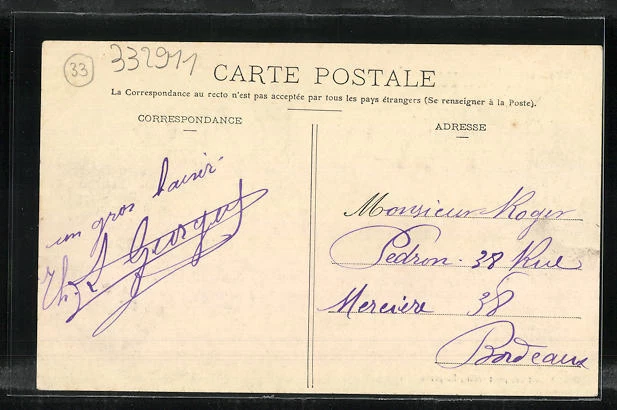 33
332911
CARTE POSTALE
La Correspondance au recto n'est pas acceptée par tous les pays étrangers (Se renseigner à la Poste).
CORRESPONDANCE
un gros baiser
Georges
ADRESSE
Monsieur Roger
Pedron. 38 Rue
Mercière 38
Bordeaux